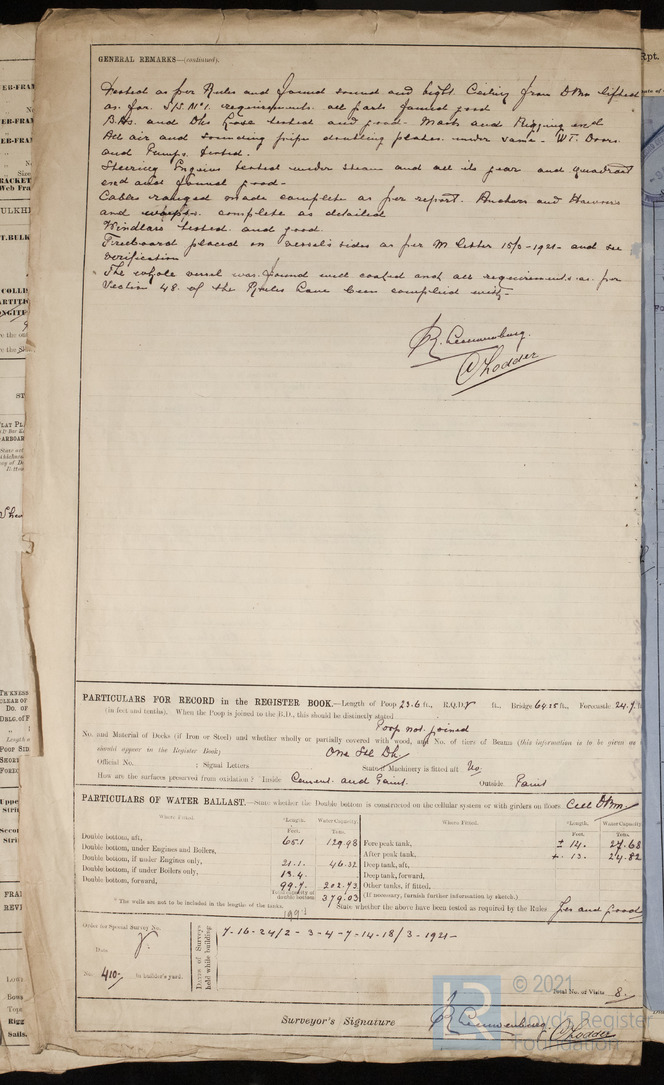 GENERAL REMARKS—(continued).
Tested as per Rules and found sound and tight. Ceiling from DBm lifted
as for S/S No 1. requirements all parts found good
BHs. and Dks Hose tested and good. Masts and Rigging end
All air and sounding pipe doubling plates under same - WT. Doors
and Pumps tested.
Steering Engines tested under steam and all its gear and quadrant
end and found good -
Cables ranged made complete as per report. Anchors and Hawsers
and warps. complete as detailed
Windlass tested and good.
Freeboard placed on vessel's sides as per M letter 1921 - and see
verification
The whole vessel was found well coated and all requirements as per
Section 48. of the Rules have been complied with -
R. Leeuwenburg.
Lodder
PARTICULARS FOR RECORD in the REGISTER BOOK.—Length of Poop 23.6 ft., R.Q.D. ft., Bridge 64.25 ft., Forecastle 24.9 ft
(in feet and tenths). When the Poop is joined to the B.D., this should be distinctly stated
Poop not joined
No. and Material of Decks (if Iron or Steel) and whether wholly or partially covered with wood, and No. of tiers of Beams (this information is to be given as it
should appear in the Register Book) One Stl Dk
Official No. ; Signal Letters State if Machinery is fitted aft No.
How are the surfaces preserved from oxidation? Inside Cement and Paint. Outside Paint
PARTICULARS OF WATER BALLAST.—State whether the Double bottom is constructed on the cellular system or with girders on floors Cell DBm
Where Fitted. *Length. Water Capacity. Where Fitted. *Length. Water Capacity.
Feet. Tons. Feet. Tons.
Double bottom, aft, 65.1 129.98 Fore peak tank, ± 14. 27.68
Double bottom, under Engines and Boilers, After peak tank, ± 13. 24.82
Double bottom, if under Engines only, 21.1. 46.32 Deep tank, aft,
Double bottom, if under Boilers only, 13.4. Deep tank, forward,
Double bottom, forward, 99.7. 202.73 Other tanks, if fitted,
Total capacity of double bottom 379.03 (If necessary, furnish further information by sketch.)
* The wells are not to be included in the lengths of the tanks. State whether the above have been tested as required by the Rules Yes and good
199.1
Order for Special Survey No.
Date
No. 410 in builder's yard.
Dates of Surveys held while building
7-16-24/2 - 3-4-7-14-18/3 - 1921-
Total No. of Visits 8.
Surveyor's Signature R. Leeuwenburg. Lodder
LR © 2021
Lloyd's Register
Foundation